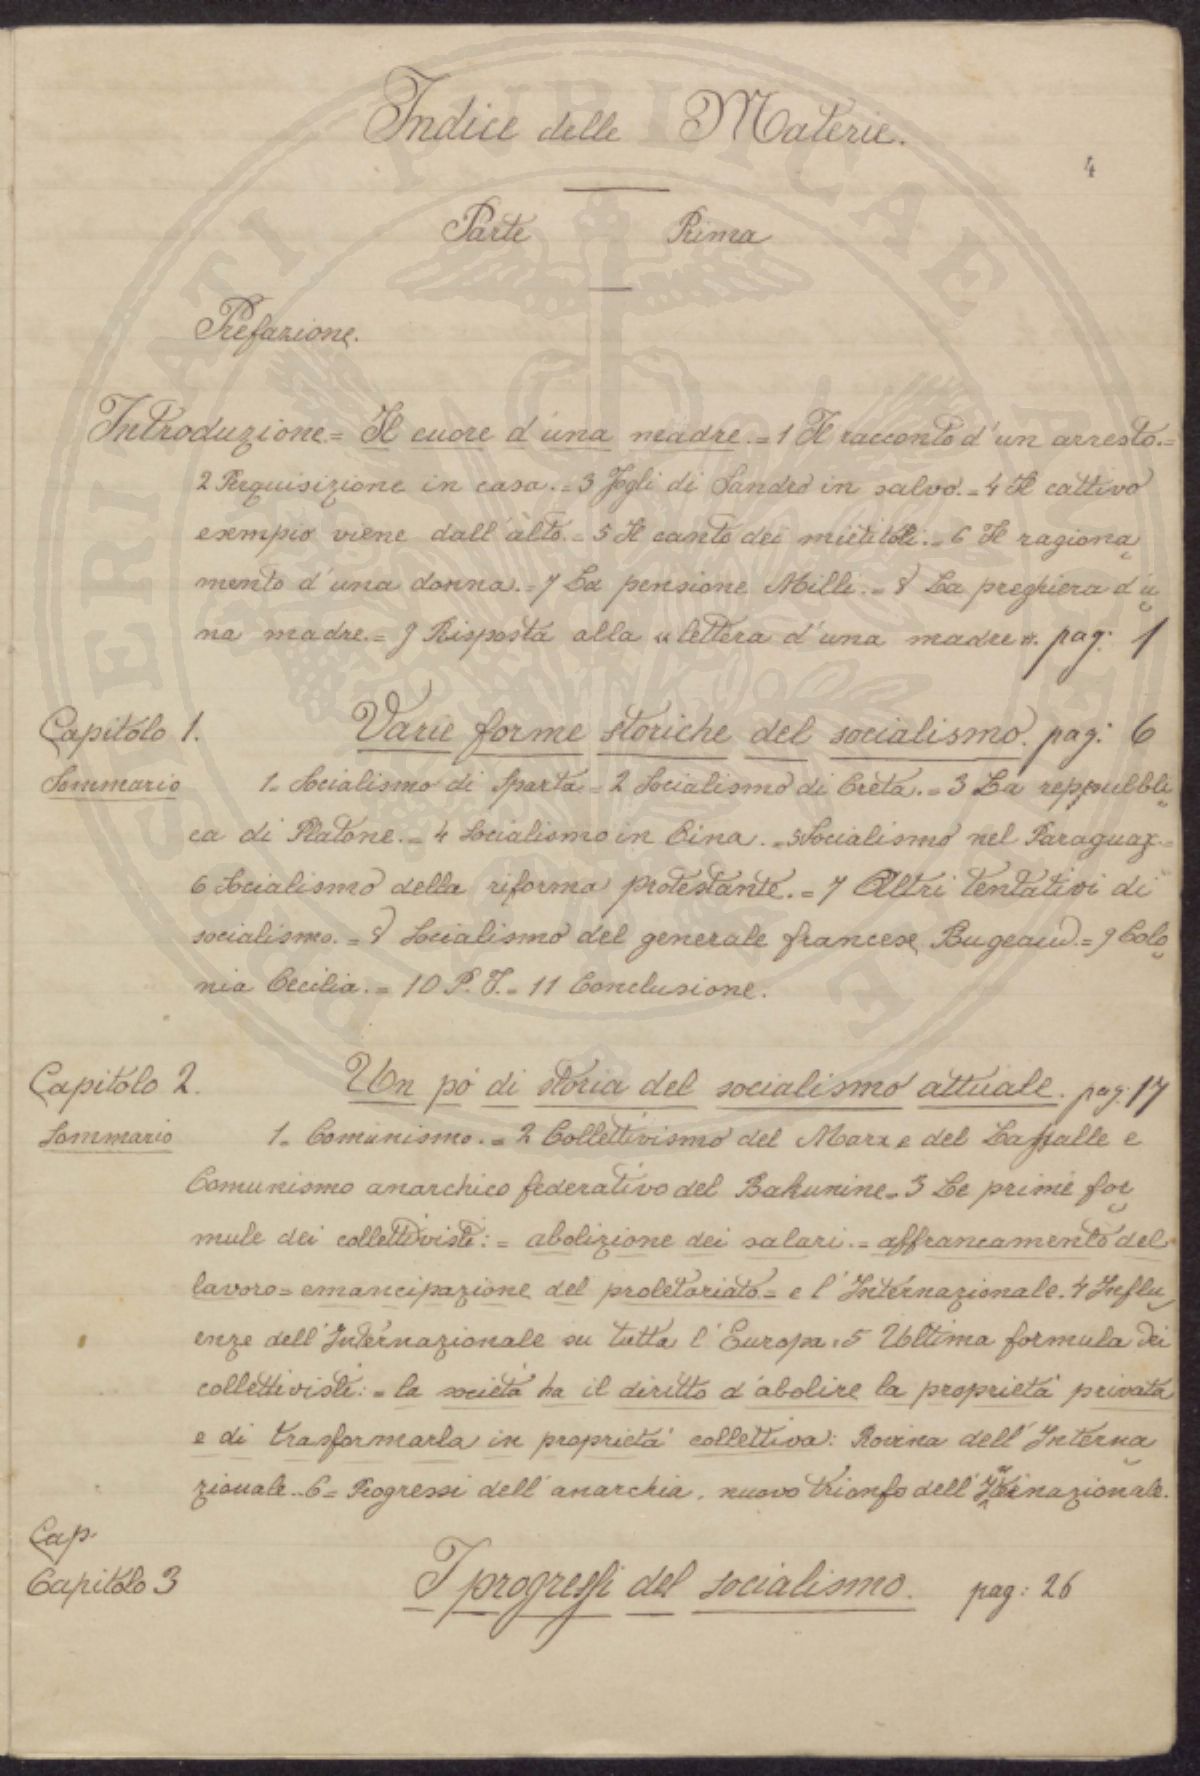 Indice delle Materie.
4
Parte Prima
Prefazione.
Introduzione = Il cuore d'una madre. = 1 Il racconto d'un arresto. =
2 Perquisizione in casa. = 3 Fogli di Sandro in salvo. = 4 Il cattivo
esempio viene dall'alto. = 5 Il canto dei mietitoli. = 6 Il ragiona
mento d'una donna. = 7 La pensione Milli. = 8 La preghiera d'u
na madre. = 9 Risposta alla « lettera d'una madre ». pag: 1
Capitolo 1. Varie forme storiche del socialismo. pag: 6
Sommario 1. Socialismo di Sparta = 2 Socialismo di Creta. = 3 La reppubbli
ca di Platone. = 4 Socialismo in Cina. = 5 Socialismo nel Paraguay. =
6 Socialismo della riforma protestante. = 7 Altri tentativi di
socialismo. = 8 Socialismo del generale francese Bugeaud. = 9 Colo
nia Cecilia. = 10 P. I. = 11 Conclusione.
Capitolo 2. Un pó di storia del socialismo attuale. pag: 17
Sommario 1. Comunismo. = 2 Collettivismo del Marx e del Lassalle e
Comunismo anarchico federativo del Bakunine = 3 Le prime for
mule dei collettivisti: = abolizione dei salari. = affrancamento del
lavoro = emancipazione del proletariato = e l'Internazionale. 4 Influ
enze dell'Internazionale su tutta l'Europa. 5 Ultima formula dei
collettivisti: = la società ha il diritto d'abolire la proprietà privata
e di trasformarla in proprietà collettiva: Rovina dell'Interna
zionale.. 6 = Progressi dell'anarchia, nuovo trionfo dell'Internazionale.
Cap.
Capitolo 3 I progressi del socialismo. pag: 26